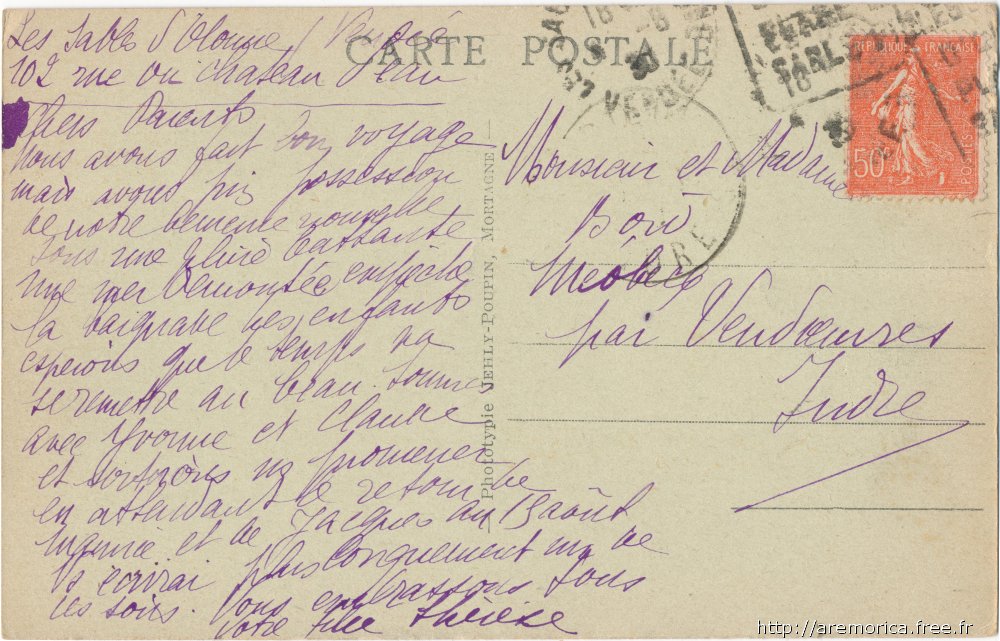 Les Sables d'Olonne / Vendée
102 rue du Chateau d'eau
Chers Parents
nous avons fait bon voyage
mais avons pris possession
de notre demeure nouvelle
sous une pluie battante
une mer démontée empêche
la baignade des enfants
espérons que le temps va
se remettre au beau. sommes
avec Yvonne et Claude
et sortirons nous promener
en attendant le retour de
et de Jacques au 15 août
écrirai plus longuement un de
ces soirs. Vous embrassons tous
votre fille Thérèse
CARTE POSTALE
Phototypie JEHLY-POUPIN, MORTAGNE
RÉPUBLIQUE FRANÇAISE
50
POSTES
Monsieur et Madame
Méobec
par Vendœuvres
Indre
http://aremorica.free.fr